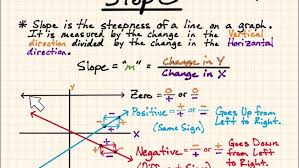 Slope
* Slope is the steepness of a line on a graph.
It is measured by the change in the Vertical
direction divided by the change in the Horizontal
direction.
Slope = "m" = Change in Y / Change in X
Zero = 0/+ or 0/-
Positive = +/+ or -/- Goes Up from
(Same Sign) Left to Right.
Negative = Goes Down
from Left
to Right.